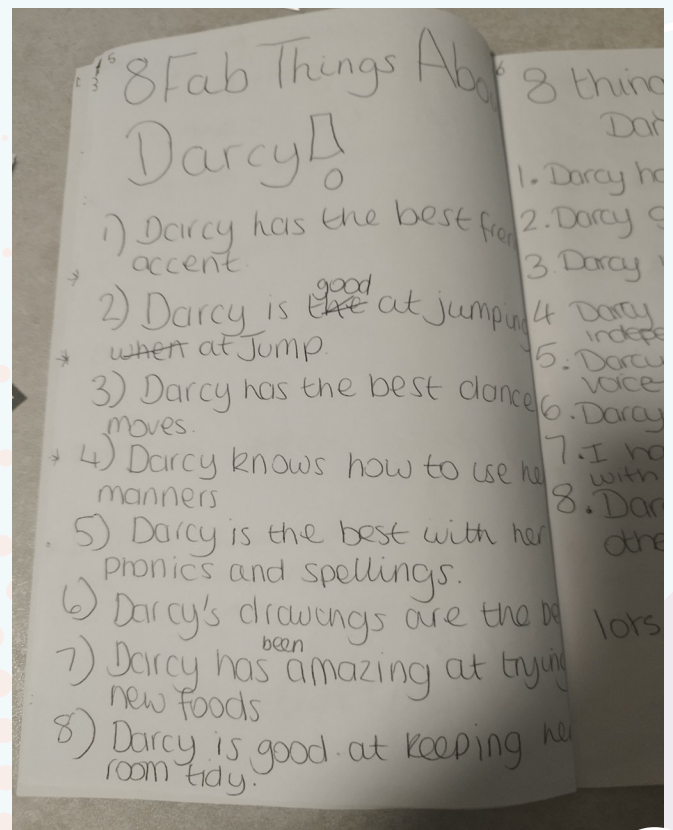 8 Fab Things Abo
Darcy!
1) Darcy has the best fren
accent.
2) Darcy is the good at jumping
when at Jump.
3) Darcy has the best dance
moves.
4) Darcy knows how to use he
manners
5) Darcy is the best with her
phonics and spellings.
6) Darcy's drawings are the be
7) Darcy has been amazing at trying
new foods
8) Darcy is good at keeping he
room tidy.
8 thing
Dar
1. Darcy ha
2. Darcy
3. Darcy
4 Darcy
indepe
5. Darcy
voice
6. Darcy
7. I ha
with
8. Dar
othe
lots